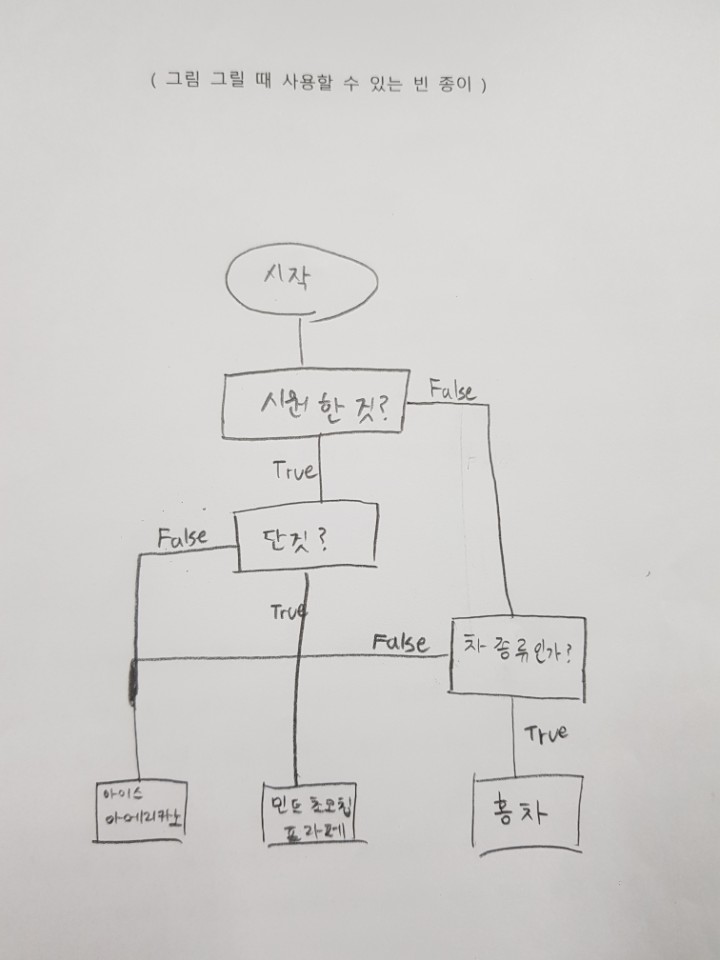 ( 그림 그릴 때 사용할 수 있는 빈 종이 )
시작
시원한 것?
False
True
단것?
False
True
False
차 종류인가?
True
아이스
아메리카노
민트 초코칩
프라페
홍차